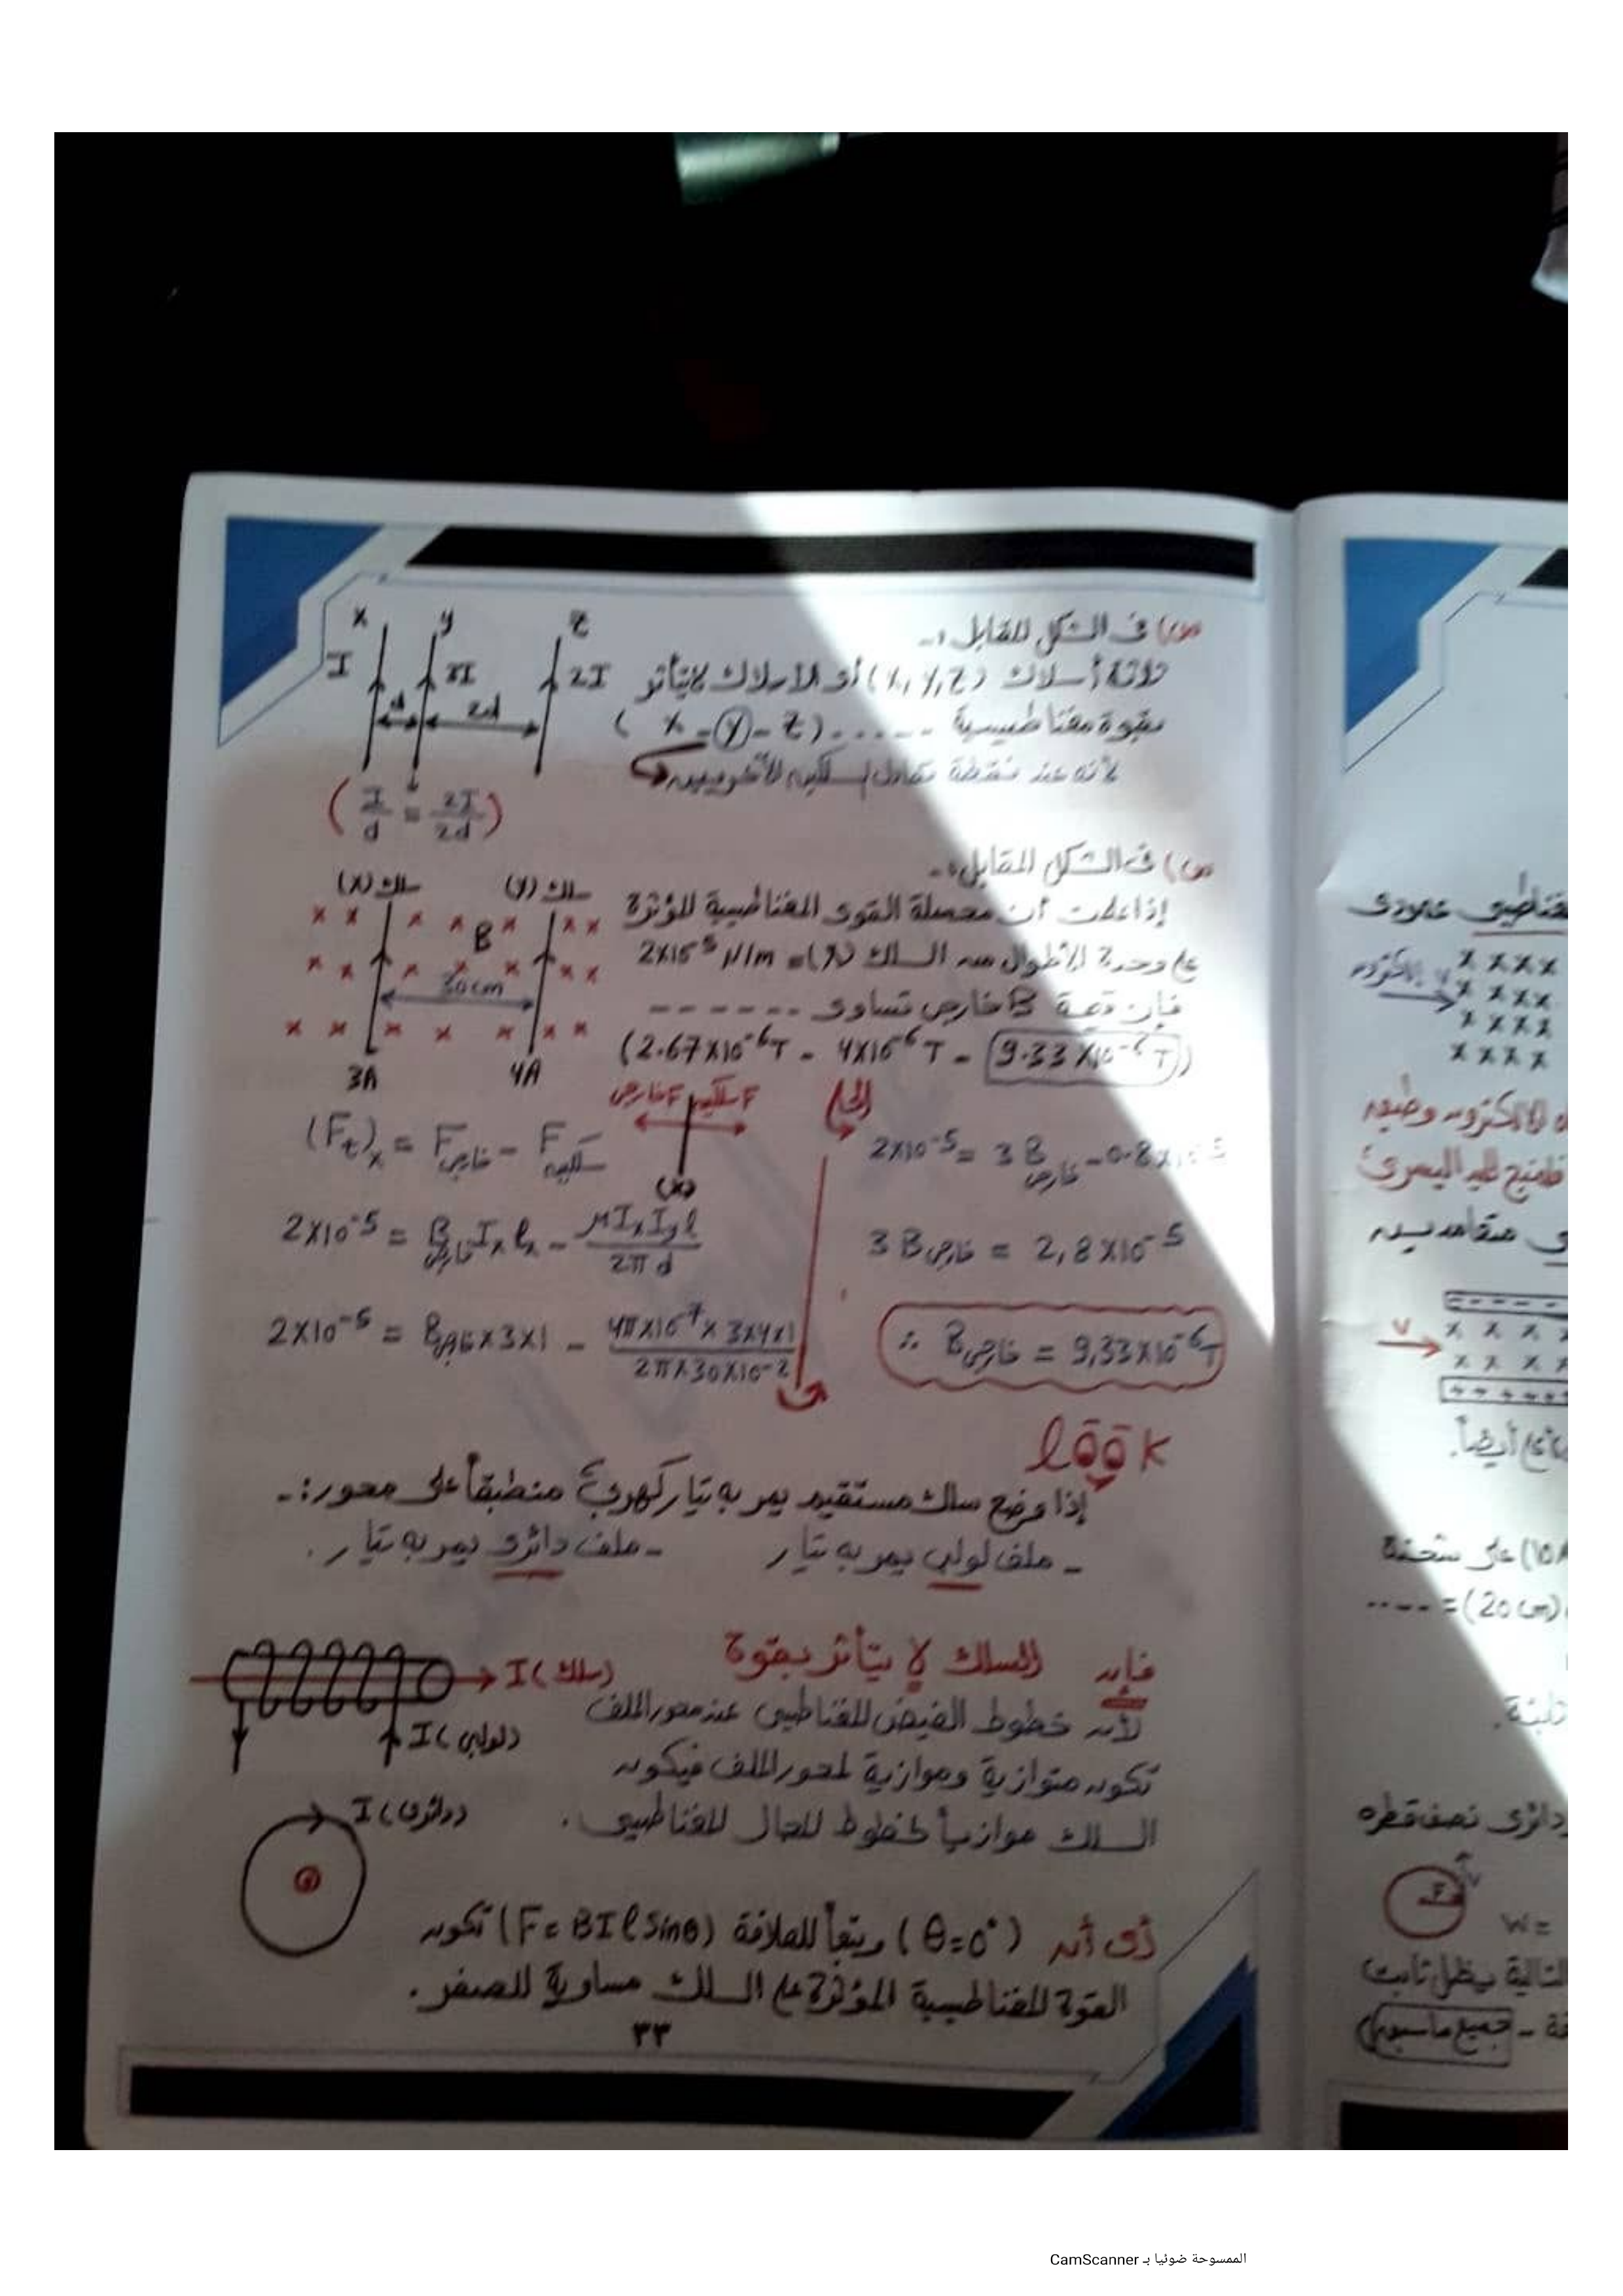 س) فى الشكل المقابل :-
ثلاثة أسلاك (X, Y, Z) أى الأسلاك لا يتأثر
بقوة مغناطيسية ...... (X - Y - Z)
لأنه عند نقطة تعادل السلكين الآخريين
X Y Z
I 3I 2I
d 2d
(I/d = 2I/2d)
س) فى الشكل المقابل :-
إذا علمت أن محصلة القوى المغناطيسية المؤثرة
على وحدة الأطوال من السلك (X) = 2X10⁻⁵ N/m
فإن قيمة B خارجى تساوى ------
(2.67X10⁻⁶T - 4X10⁻⁶T - 9.33X10⁻⁶T)
سلك (X) سلك (Y)
B
30cm
3A 4A
الحل
F خارجى F سلكين
(X)
(Ft)x = F خارجى - F سلكين
2X10⁻⁵ = B خارجى Ix ℓx - μIxIyℓ / 2πd
2X10⁻⁵ = B خارجى X3X1 - 4πX10⁻⁷X3X4X1 / 2πX30X10⁻²
2X10⁻⁵ = 3B خارجى - 0.8X10⁻⁵
3B خارجى = 2,8X10⁻⁵
∴ B خارجى = 9,33X10⁻⁶T
look
إذا وضع سلك مستقيم يمر به تيار كهربى منطبقاً على محور :-
- ملف لولبى يمر به تيار - ملف دائرى يمر به تيار .
فإن السلك لا يتأثر بقوة
لأن خطوط الفيض المغناطيسى عند محور الملف
تكون متوازية وموازية لمحور الملف فيكون
السلك موازياً لخطوط المجال المغناطيسى .
I (سلك)
I (لولبى)
I (دائرى)
أى أن (θ=0°) وتبعاً للعلاقة (F= BIℓSinθ) تكون
القوة المغناطيسية المؤثرة على السلك مساوية للصفر .
٣٣
مغناطيسى عمودى
قاعدة فلمنج لليد اليسرى
V
أيضاً .
(10A) على شحنة
(20 cm) = ----
دائرى نصف قطره
V
r
W =
التالية يظل ثابت
جميع ما سبق)
الممسوحة ضوئيا بـ CamScanner